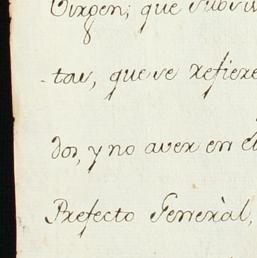 Virgen; que subsis
tar, que se refiere
dor, y no aver en el
Prefecto General,